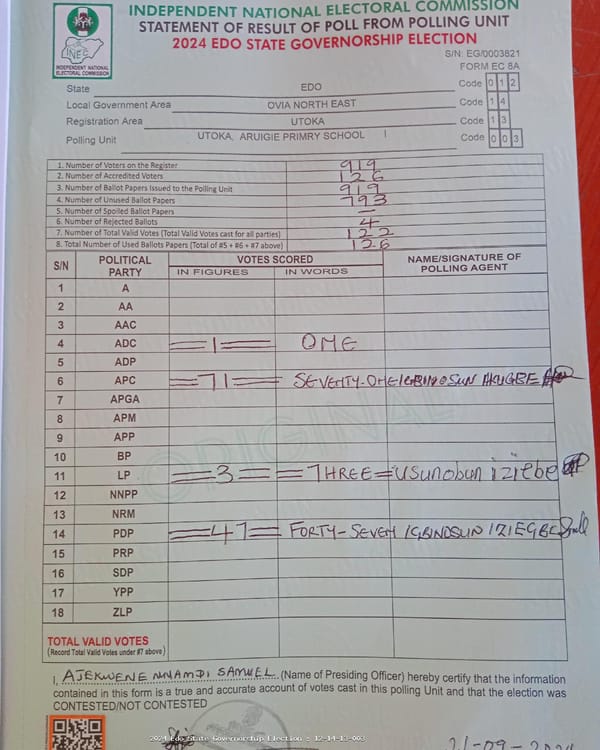 INDEPENDENT NATIONAL ELECTORAL COMMISSION
STATEMENT OF RESULT OF POLL FROM POLLING UNIT
2024 EDO STATE GOVERNORSHIP ELECTION
INEC
INDEPENDENT NATIONAL ELECTORAL COMMISSION
S/N: EG/0003821
FORM EC 8A
State EDO Code 0 1 2
Local Government Area OVIA NORTH EAST Code 1 4
Registration Area UTOKA Code 1 3
Polling Unit UTOKA, ARUIGIE PRIMRY SCHOOL I Code 0 0 3
1. Number of Voters on the Register 919
2. Number of Accredited Voters 126
3. Number of Ballot Papers Issued to the Polling Unit 919
4. Number of Unused Ballot Papers 793
5. Number of Spoiled Ballot Papers –
6. Number of Rejected Ballots 4
7. Number of Total Valid Votes (Total Valid Votes cast for all parties) 122
8. Total Number of Used Ballots Papers (Total of #5 + #6 + #7 above) 126
S/N POLITICAL PARTY VOTES SCORED NAME/SIGNATURE OF POLLING AGENT
IN FIGURES IN WORDS
1 A
2 AA
3 AAC
4 ADC =1= ONE
5 ADP
6 APC =71= SEVENTY-ONE IGBINOSUN AKUGBE
7 APGA
8 APM
9 APP
10 BP
11 LP =3= =THREE= usunobun iziebe
12 NNPP
13 NRM
14 PDP =47= FORTY-SEVEN IGBINOSUN IZIEGBE
15 PRP
16 SDP
17 YPP
18 ZLP
ORIGINAL
TOTAL VALID VOTES
(Record Total Valid Votes under #7 above)
I, AJEKWENE NNAMDI SAMUEL (Name of Presiding Officer) hereby certify that the information
contained in this form is a true and accurate account of votes cast in this polling Unit and that the election was
CONTESTED/NOT CONTESTED
2024 Edo State Governorship Election - 12-14-13-003
21-09-2024